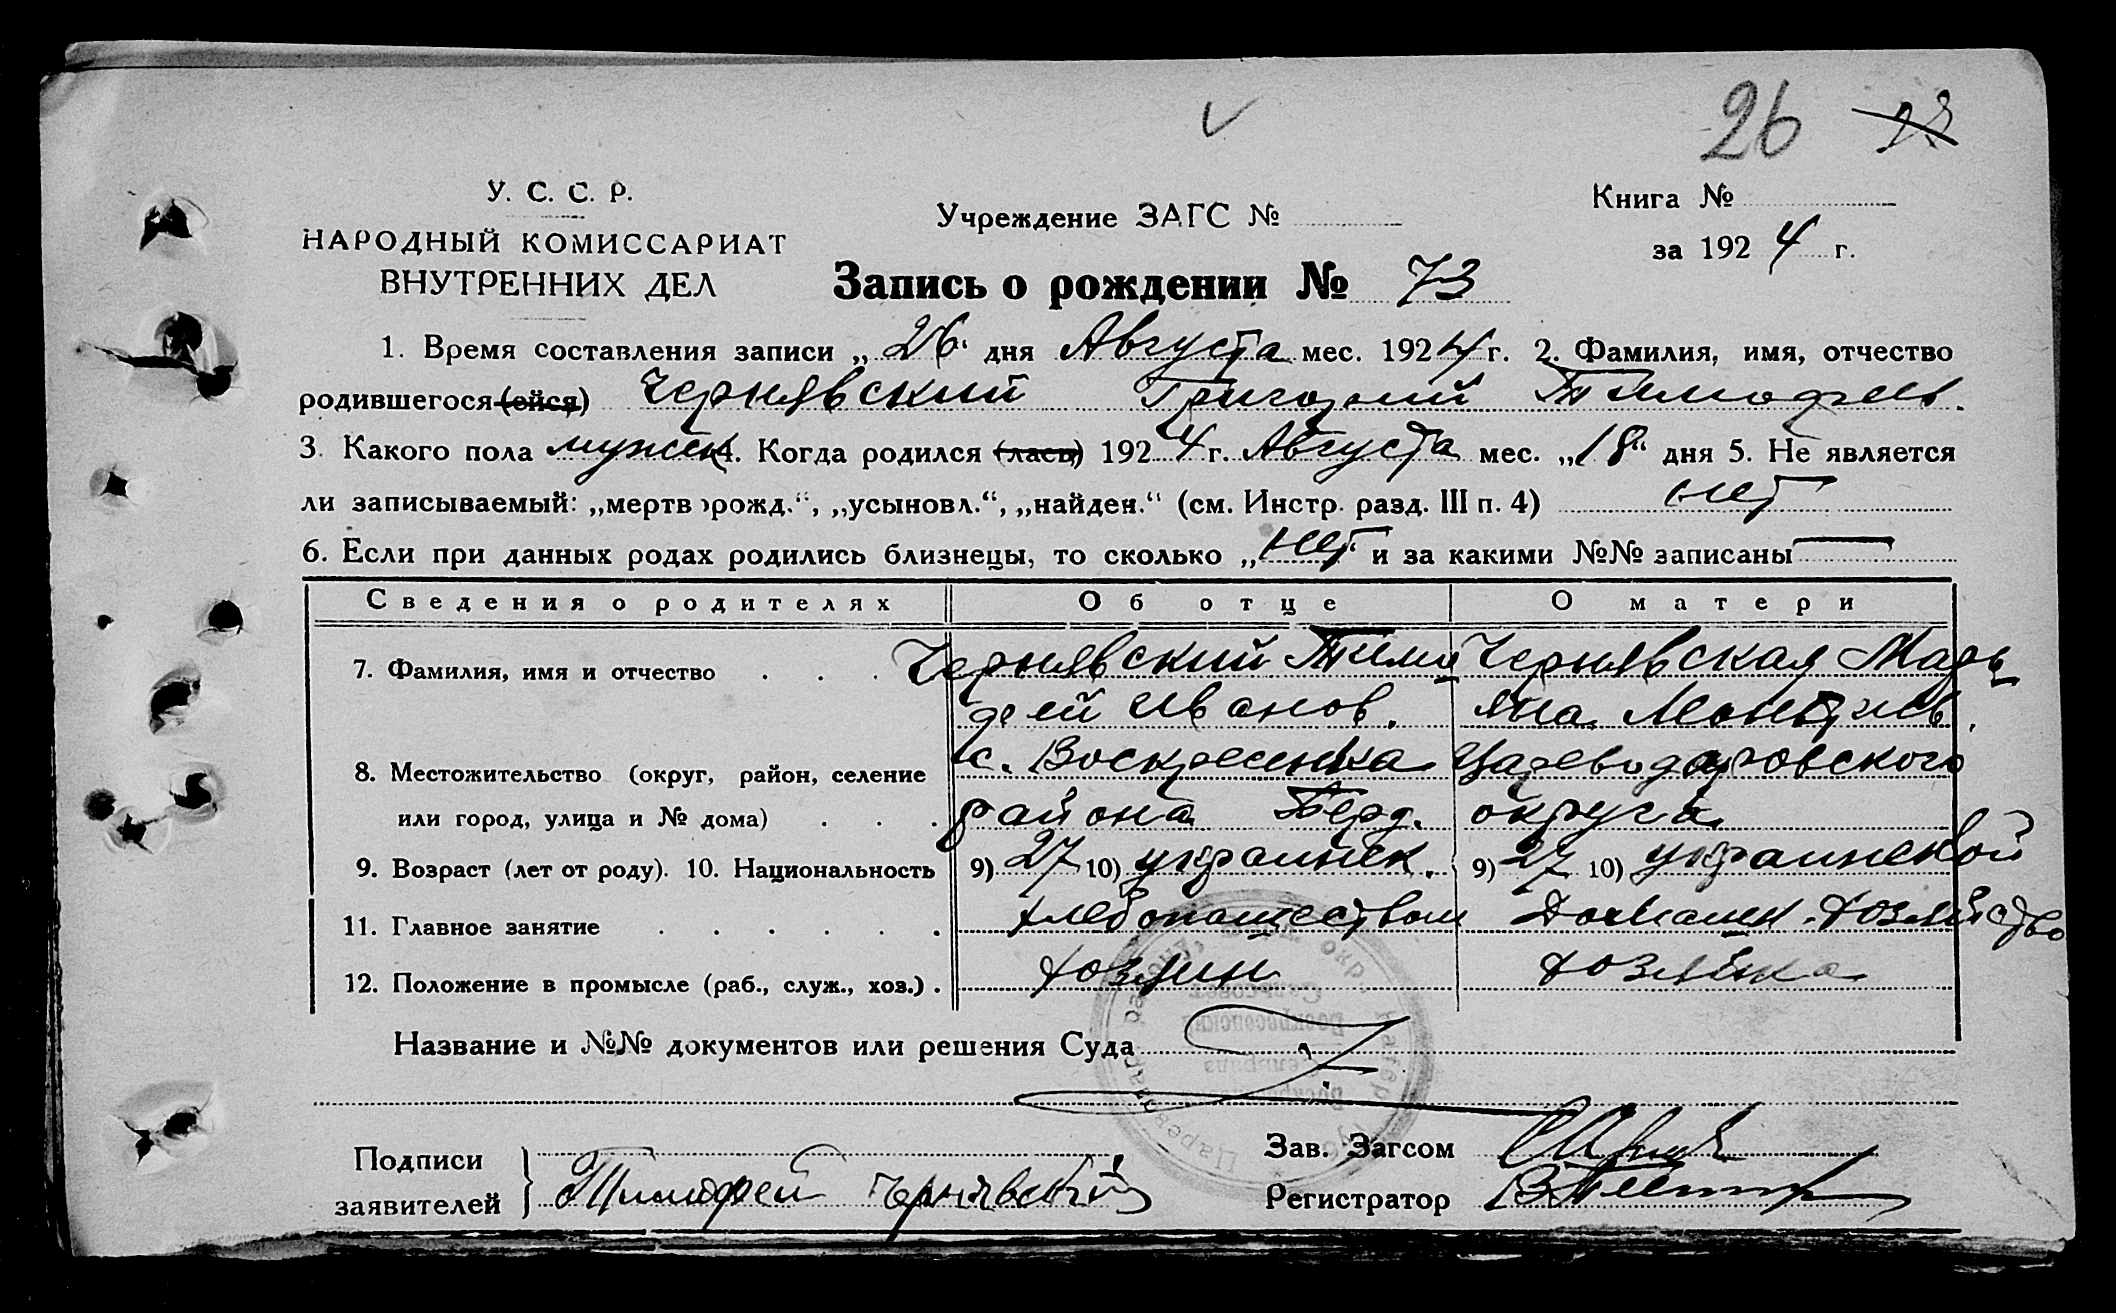 26 23
У. С. С. Р.
НАРОДНЫЙ КОМИССАРИАТ
ВНУТРЕННИХ ДЕЛ
Учреждение ЗАГС №
Книга №
за 1924 г.
Запись о рождении № 73
1. Время составления записи „26“ дня Августа мес. 1924 г. 2. Фамилия, имя, отчество
родившегося (ейся) Чернявский Григорий Тимофеев.
3. Какого пола мужск 4. Когда родился (лась) 1924 г. Августа мес. „18“ дня 5. Не является
ли записываемый: „мертворожд.“, „усыновл.“, „найден.“ (см. Инстр. разд. III п. 4) нет
6. Если при данных родах родились близнецы, то сколько „нет“ и за какими №№ записаны —
Сведения о родителях Об отце О матери
7. Фамилия, имя и отчество . . . Чернявский Тимо Чернявская Марь
фей Иванов. яна
8. Местожительство (округ, район, селение с. Воскресенка Цареводаровского
или город, улица и № дома) . . . района Берд. округа
9. Возраст (лет от роду). 10. Национальность 9) 27 10) украинск. 9) 27 10) украинской
11. Главное занятие . . . . . . хлебопашеством Домашн. хозяйство
12. Положение в промысле (раб., служ., хоз.) . хозяин хозяйка
Название и №№ документов или решения Суда
Подписи
заявителей } Тимофей Чернявский
Зав. Загсом
Регистратор